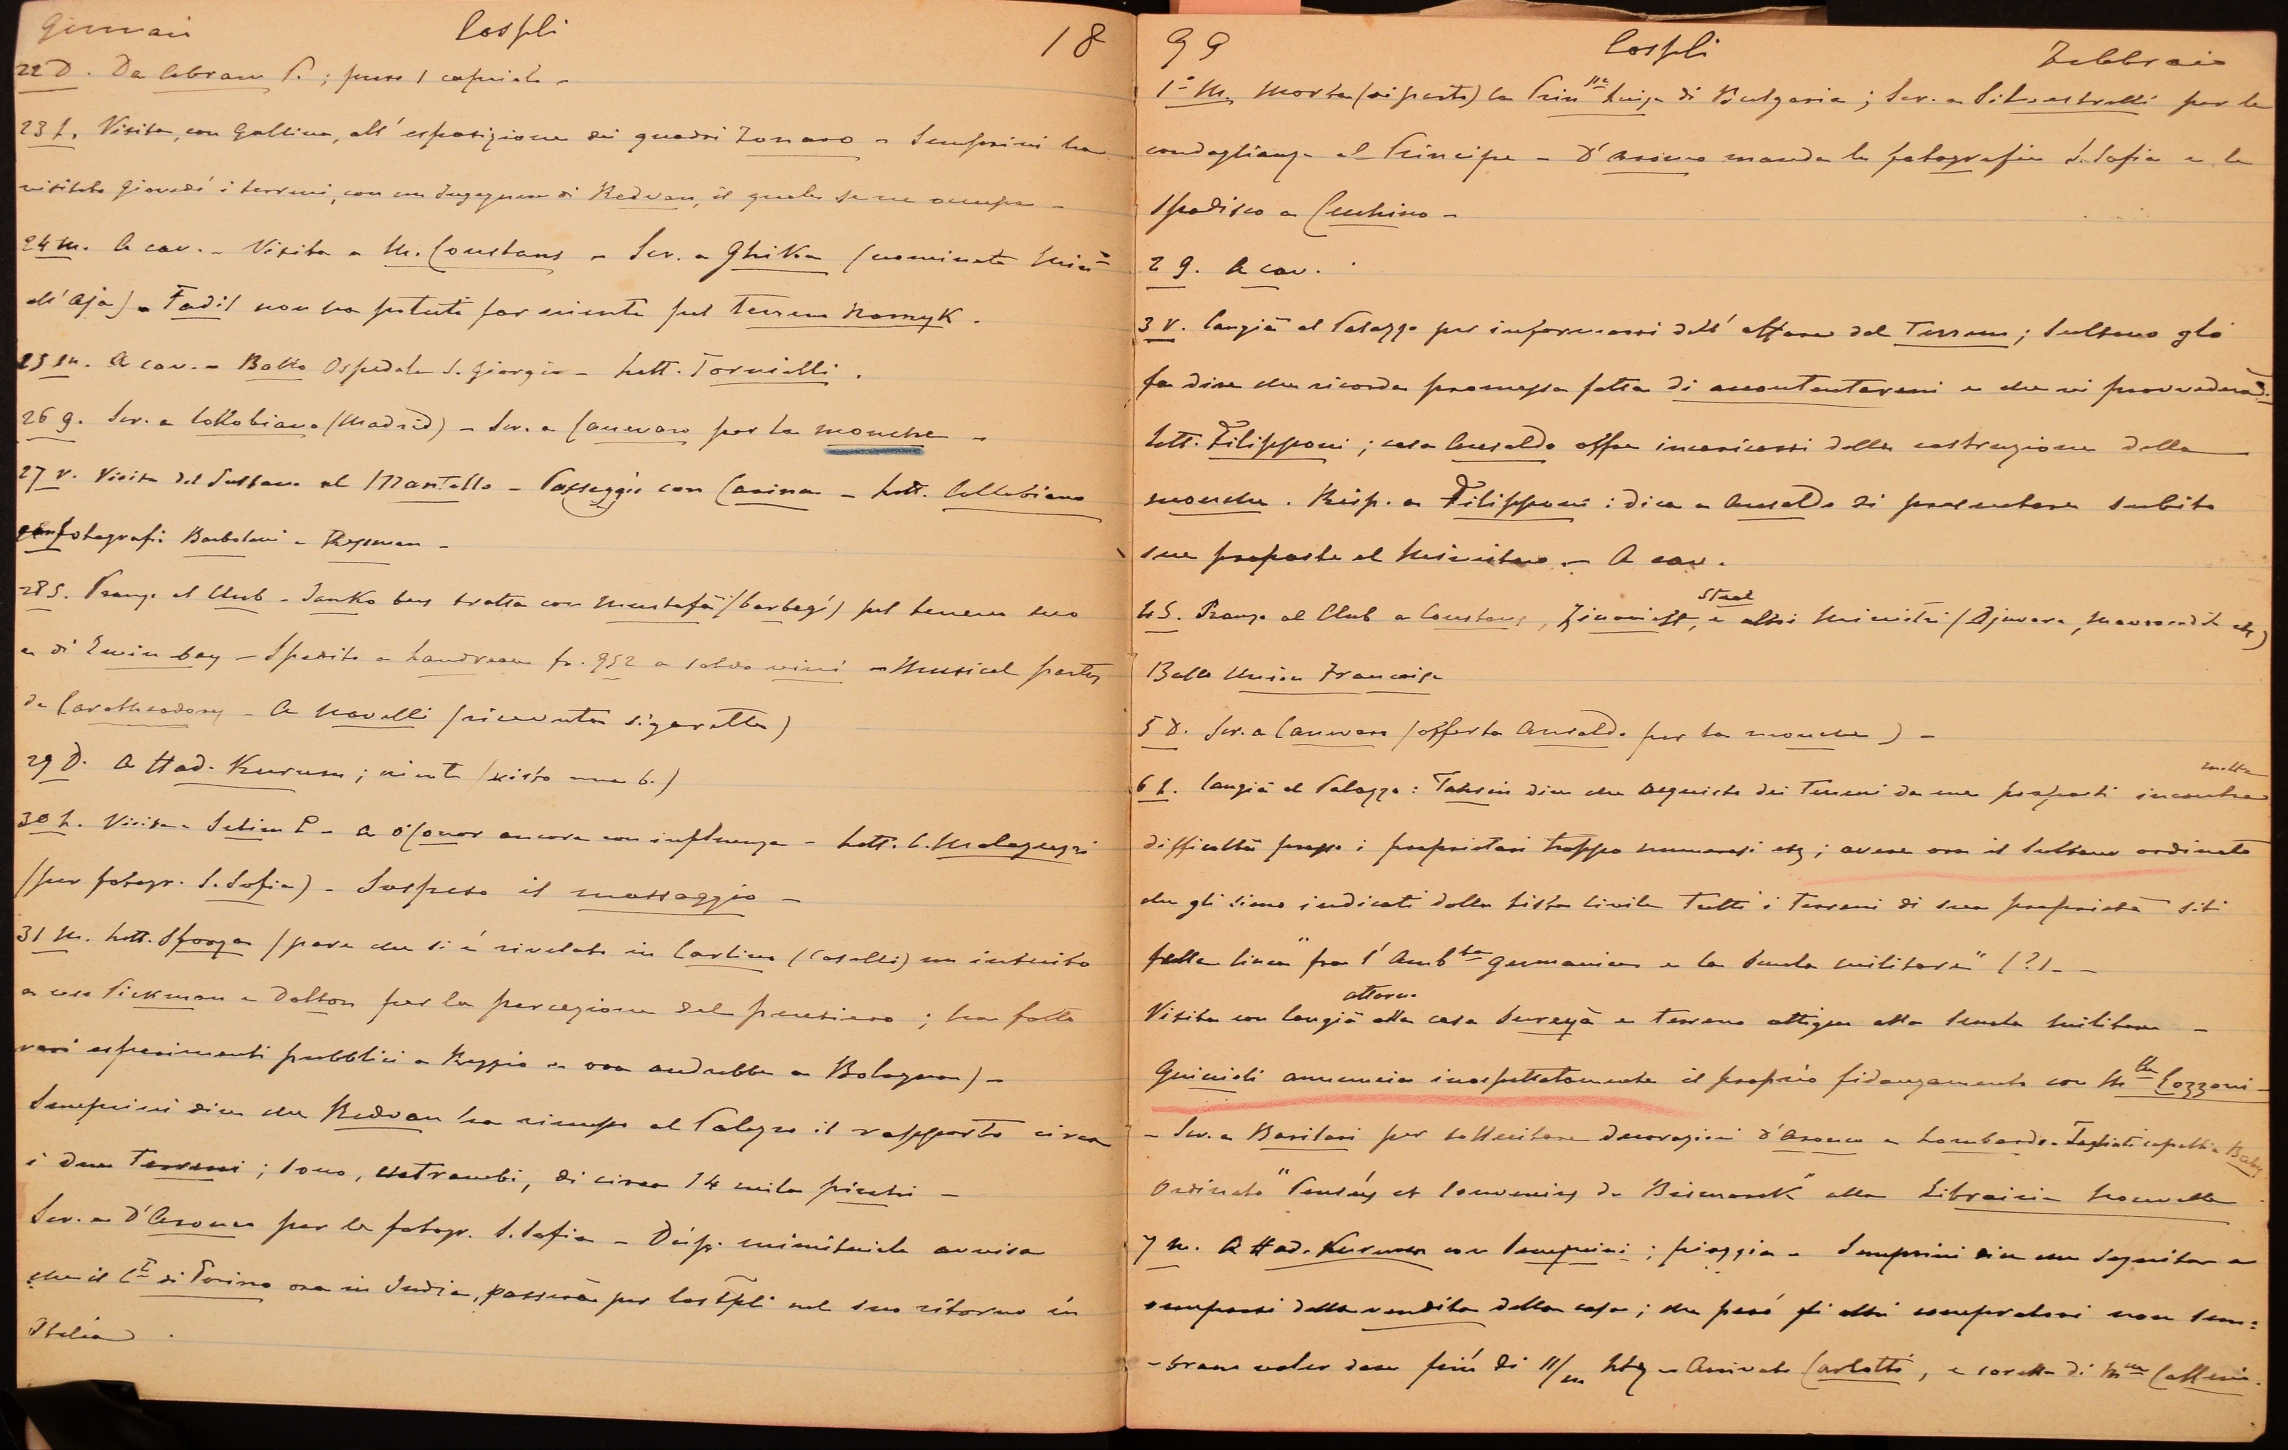 Gennaio Cospli 18
22 D. Da Cebram P.; preso 1 capriolo -
23 L. Visita, con Gallina, all'esposizione dei quadri Zonaro - Semprini ha
visitato Giovedì i terreni, con un Ingegnere di Redvan, il quale se ne occupa -
24 M. A cav. - Visita a M. Constans - Scr. a Ghika (nominato Min°
all'Aja) - Fadil non ha potuto far niente pel terreno Namyk.
25 M. A cav. - Ballo Ospedale S. Giorgio - Lett. Tornielli.
26 G. Scr. a Collobiano (Madrid) - Scr. a Canevaro per la mouche -
27 V. Visita del Sultano al Mantello - Passeggio con Carina - Lett. Collobiano
fotografi: Barbolani e Reyman -
28 S. Pranzo al Club - Janko bey tratta con Mustafà (barbagì) pel terreno suo
e di Emin bey - Spedito a Landreau fr. 952 a saldo vini - Musical party
da Caratheodory - A Novelli (ricevuta sigarette)
29 D. A Had. Kurum; niente (visto una b.)
30 L. Visita a Selim P. - A O'Conor ancora con influenza - Lett. C. Malaguzzi
(per fotogr. S. Sofia) - Sospeso il massaggio -
31 M. Lett. Sforza (pare che si è rivelato in Carlino (Caselli) un intuito
a uso Pickman e Dalton per la percezione del pensiero; ha fatto
vari esperimenti pubblici a Reggio e ora andrebbe a Bologna) -
Semprini dice che Redvan ha rimesso al Palazzo il rapporto circa
i due Terreni; sono, entrambi, di circa 14 mila picchi -
Scr. a D'Aronco per le fotogr. S. Sofia - Disp. ministeriale avvisa
che il Cte di Torino ora in India, passerà per Costpli nel suo ritorno in
Italia.
99 Cospli Febbraio
1° M. Morta (di parto) la Prinssa Luisa di Bulgaria; Scr. a Silvestrelli per le
condoglianze al Principe - D'Aronco manda le fotografie S. Sofia e le
spedisco a Cecchino -
2 G. A cav.
3 V. Cangià al Palazzo per informarsi dell'affare del Terreno; Sultano gli
fa dire che ricorda promessa fatta di accontentarmi e che vi provvederà.
Lett. Filipponi; casa Ansaldo offre incaricarsi della costruzione della
mouche. Risp. a Filipponi: dica a Ansaldo di presentare subito
sue proposte al Ministero. - A cav.
4 S. Pranzo al Club a Constans, Zinoview, Stael e altri Ministri (Djuvara, Mavrocordato etc)
Ballo Union Française
5 D. Scr. a Canevaro (offerta Ansaldo per la mouche) -
6 L. Cangià al Palazzo: Tahsin dice che acquisto dei Terreni da me proposti incontra molte
difficoltà presso i proprietari troppo numerosi etc; avere ora il Sultano ordinato
che gli siano indicati dalla Lista Civile tutti i terreni di sua proprietà siti
sulla linea "fra l'Ambta germanica e la Scuola militare" (?) - -
Visita con Cangià attorno alla casa Sureyà e terreno attiguo alla Scuola Militare -
Guicioli annuncia inaspettatamente il proprio fidanzamento con Mlle Cozzoni -
- Scr. a Barilari per sollecitare decorazioni d'Aronco e Lombardo - Tagliati capelli a Baby
Ordinato "Pensées et Souvenirs de Bismarck" alla Librairie Nouvelle.
7 M. A Had. Kurum con Semprini; pioggia - Semprini dice che seguita a
occuparsi della vendita della casa; che però gli altri compratori non sem=
-brano voler dare più di 11/m Ltq - Arrivato Carlotti, e sorella di Mme Calleri.